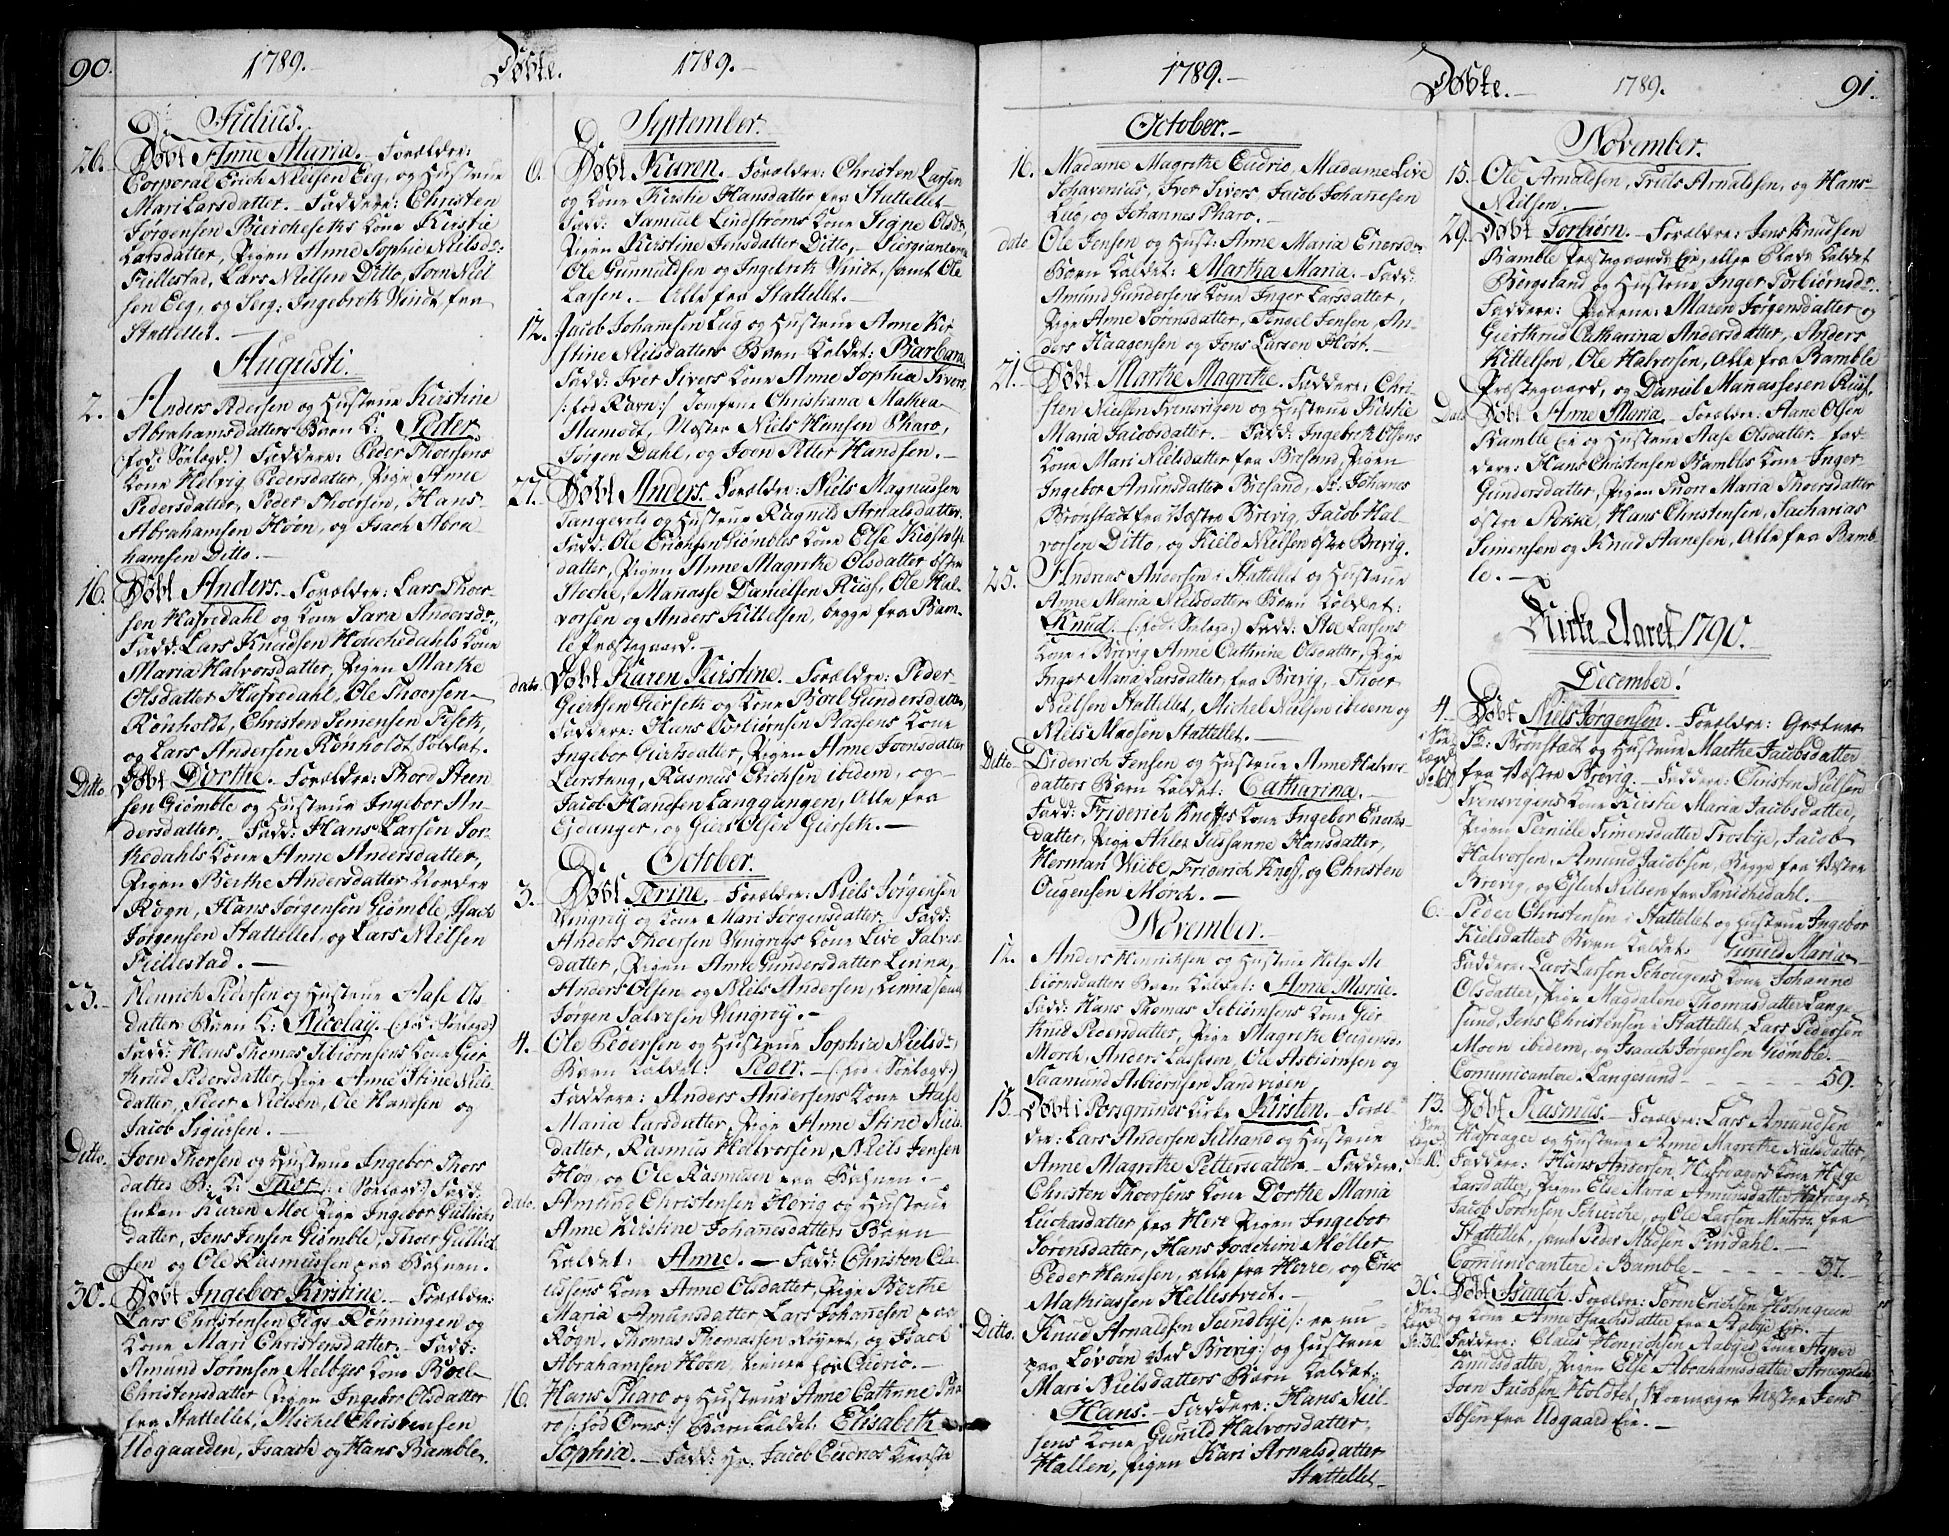 90.
1789.
Døbte.
1789.
Julius.
26. Døbt Anne Maria. Forældre:
Corporal Erich Nielsen Eeg, og Hustrue
Mari Larsdatter. Faddere: Christen
Jørgensen Kone Kirstie
Larsdatter, Pigen Anne Sophie Nielsdr:
Fiellestad, Lars Nielsen Ditto, Joen Niel
sen Eeg, og Serg: Ingebreth Vindt fra
Stattellet.
Augusti.
2. Anders Pedersen og Hustrue Kirstine
Abrahamsdatters Barn K: Peder.
(fød i Sønlægd.) Faddere: Peder Thoersens
Kone Helvig Pedersdatter, Pige Anne
Pedersdatter, Peder Thoersen, Hans
Abrahamsen Hoøn, og Isach Abra
hamsen Ditto.
16. Døbt Anders. Forældre: Lars Thoer-
sen Hafredahl og Kone Sara Andersdr:
Fadd: Lars Knudsen Kone
Maria Halvorsdatter, Pigen Marthe
Olsdatter Hafredahl, Ole Thoersen
Rønholdt, Christen Simensen
og Lars Andersen Rønholdt Soldat.
Ditto Døbt Dorthe. Forældre: Thord Steen
sen Giømble og Hustrue Ingebor An
dersdatter. Fadd: Hans Larsen
Kone Anne Andersdatter,
Pigen Berthe Andersdatter Nordre
Rogn, Hans Jørgensen Giømble, Isach
Jørgensen Stattellet, og Lars Nielsen
Fiellestad.
23. Henrich Pedersen og Hustrue Aase Ols
datters Barn K: Nicolay. (fød i Sønlægd)
Fadd: Hans Thomas Kone Gier
thrud Pedersdatter, Pige Anne Stine Niels
datter, Peder Nielsen, Ole Hansen og
Jacob Sigursen.
Ditto. Joen Thorsen og Hustrue Ingebor Thors
datters B: K: Thor. (i Sønlægd) Fadd:
Enken Karen Moe Pige Ingebor Gullichs
datter, Jens Jensen Giømble, Thoer Gullich
sen og Ole Rasmussen fra Bahnen.
30. Døbt Ingebor Kirstine. Forældre:
Lars Christensen Eegs Rønningen og
Kone Mari Christensdatter. Fadd:
Amund Sørensen Melbyes Kone Boel
Christensdatter Pigen Ingebor Olsdatter
fra Stattellet, Michel Christensen
Udgaarden, Isaach og Hans Bamble.
September.
6. Døbt Karen. Forældre: Christen Larsen
og Kone Kirstie Hansdatter fra Stattellet
Fadd: Samuel Lindstrøms Kone Signe Olsdr,
Pigen Kirstine Jensdatter Ditto,
Ole Gunnuldsen og Ingebreth Vindt, samt Ole
Larsen. Alle fra Stattellet.
12. Jacob Johannsen Lug og Hustrue Anne Kir
stine Nielsdatters Barn Kaldet: Barbara
Fadd: Iver Sivers Kone Anne Sophia Sivers
/: fød Ravn :/ Jomfrue Christiana Mathea
Aamodt, Mester Niels Hansen Pharo,
Jørgen Dahl, og Joen Petter Handsen.
27. Døbt Anders. Forældre: Niels Magnussen
Langerød og Hustrue Ragnild Arnaldsdatter.
Fadd: Ole Evensen Giømbles Kone Else Kiøstolfs
datter, Pigen Anne Magrethe Olsdatter østre
Stoche, Manasse Danielsen Riis, Ole Hal
vorsen og Anders Kittelsen, begge fra Bam-
le Præstegaard.
dato. Døbt Karen Kirstine. Forældre: Peder
Giertsen Gierseth og Kone Boel Gundersdatter
Faddere: Hans Torbiørnsen Kone
Ingebor Giertsdatter, Pigen Anne Joensdatter
Lerstang, Rasmus Erichsen ibidem, og
Jacob Handsen Langgangen, Alle fra
Eidanger, og Giert Olsen Gierseth.
October.
3. Døbt Terine. Forældre: Niels Jørgensen
Vingrøy og Kone Mari Jørgensdatter. Fadd:
Anders Thoersen Vingrøys Kone Live Salves
datter, Pigen Anne Gundersdatter Lenina,
Anders Olsen og Niels Andersen, Lenina samt
Jørgen Salvesen Vingrøy.
4. Ole Pedersen og Hustrue Sophia Nielsdr:
Barn Kaldet: Peder. (fød i Sønlægd:)
Faddere: Anders Andersens Kone Aase
Maria Larsdatter, Pige Anne Stine Niels
datter, Rasmus Helvorsen, Niels Jensen
Hog og Ole Rasmusen fra Bahnen.
dato. Amund Christensen Herig og Hustrue
Anne Kirstine Johannesdatters Barn
Kaldet: Anne. Fadd: Christen Cla-
usens Kone Anne Olsdatter, Pige Berthe
Maria Amundsdatter Lars Johannesen fra
Rogn, Thomas Thomassen Røyert, og Isach
Abrahamsen Hoen
16. Hans Pharo og Hustrue Anne Cathrine Pha
ro /: fød Orns :/ Barn Kaldet: Elisabeth
Sophia. Fadd: Hr. Jacob Kierste
1789.
Døbte.
1789.
91.
October.
16. Madame Magrethe Eudrio, Madame Live
Schavenius, Iver Sivers, Jacob Johannesen
Lug, og Johannes Pharo.
dato Ole Jensen og Hust: Anne Maria Enersdr
Barn Kaldet: Martha Maria. Fadd:
Amund Gundersens Kone Inger Larsdatter,
Pige Anne Sørensdatter, Tengel Jensen, An-
ders Haagensen og Jens Larsen Høst.
21. Døbt Marthe Magrethe. Faddere: Chri-
sten Nielsen Svensvigen og Hustrue Kirstie
Maria Jacobsdatter. Fadd: Ingebreth Olsens
Kone Mari Nielsdatter fra Børsand, Pigen
Ingebor Amunsdatter Børsand, Sr: Johanes
Brønstad fra Vestre Brevig, Jacob Hal
vorsen Ditto, og Kield Nielsen østre Brevig.
25. Andreas Andersen i Stattellet og Hustrue
Anne Maria Nielsdatters Barn Kaldet:
Knud. (fød i Sønlægd:) Fadd: Stoe Larsens
Kone i Brevig Anne Cathrine Olsdatter, Pige
Inger Maria Larsdatter, fra Brevig, Thoer
Nielsen Stattellet, Michel Nielsen ibidem og
Niels Madsen Stattellet.
Ditto Diderich Jensen og Hustrue Anne Halvors
datters Barn Kaldet: Catharina.
Fadd: Friderich Knoffs Kone Ingebor Enerds
datter, Pige Ahlet Susanne Hansdatter,
Herman Wiibe, Friderich Knoff, og Christen
Ougensen Morch.
November.
12. Anders Henrichsen og Hustrue Helge
biørnsdatters Barn Kaldet: Anne Marie.
Fadd: Hans Thomas Sebiørnsens Kone Gier
thrud Pedersdatter, Pige Magrethe Ougensdr
Morch, Anders Lassesen, Ole Asbiørnsen og
Saamund Asbiørnsen Sandvigen
15. Døbt i Porsgrunds Kirke Kirsten. Foræl
dre: Lars Andersen Silhand og Hustrue
Anne Magrethe Pettersdatter. Faddere:
Christen Thoersens Kone Dorthe Maria
Luchasdatter fra Herre Pigen Ingebor
Sørensdatter, Hans Joachim Møller
Peder Hansen, alle fra Herre, og Eric
Mathiassen Hellestvedt.
Ditto. Knud Arnaldsen Sundbye /: er nu
paa Løvøen ved Brevig :/ og Hustrue
Mari Nielsdatters Barn Kaldet:
Hans. Faddere: Hans Niel
sens Kone Gunild Halvorsdatter,
Hallen, Pigen Kari Arnaldsdatter
Stattellet
November.
15. Ole Arnaldsen, Truls Arnaldsen, og Hans
Nielsen.
29. Døbt Torbiørn. Forældre: Jens Knudsen
Bamble Præstegaards Eie, eller Plads Kaldet
Bergsland og Hustrue Inger Torbiørnsdr.
Faddere: Pigerne: Maren Jørgensdatter og
Gierthrud Catharina Andersdatter, Anders
Kittelsen, Ole Halvorsen, Alle fra Bamble
Præstegaard, og Daniel Manassesen Riis.
Dato Døbt Anne Maria. Forældre: Aane Olsen
Bamble Eie og Hustrue Aase Olsdatter. Fad-
dere: Hans Christensen Bambles Kone Inger
Gundersdatter, Pigen Maria Thoersdatter
østre Stokke, Hans Christensen, Zacharias
Simensen og Knud Aanesen, Alle fra Bamb-
le.
Kirke-Aaret 1790.
December!
4. Døbt Niels Jørgensen. Forældre: Giertner
Sr: Brønstadt og Hustrue Marthe Jacobsdatter
fra Vestre Brevig. Faddere: Christen Nielsen
Svensvigens Kone Kirstie Maria Jacobsdatter,
Pigen Pernille Simensdatter Trosbye, Jacob
Halvorsen, Amund Jacobsen, Begge fra Vestre
Brevig, og Eylert Nielsen fra Snichedahl.
6. Peder Christensen i Stattellet og Hustrue Ingebor
Kielsdatters Barn Kaldet: Gunild Maria
Faddere: Lars Larsen Schougens Kone Johanne
Olsdatter, Pige Magdalene Thomasdatter Lange
sund, Jens Christensen i Stattellet, Lars Pedersen
Moen ibidem, og Isaach Jørgensen Giømble.
Comunicantere. Langesund - - - - 59.
13. Døbt Rasmus. Forældre: Lars Amundsen
Hafsager og Hustrue Anne Magrethe Nielsdatter,
Faddere: Hans Andersen Hafsagers Kone Helge
Larsdatter, Pigen Else Maria Amunsdatter Hafsager,
Jacob Sørensen og Ole Larsen fra
Stattellet, samt Peder Madsen Findahl.
Comunicantere i Bamble - - - - 37.
30. Døbt Isaach. Forældre: Søren Erichsen Holmgreen
og Kone Anne Isachsdatter fra Aabye Eie.
Faddere: Claus Henrichsen Aabyes Kone Asper
Knudsdatter, Pigen Else Abrahamsdatter
Joen Jacobsen Holdtet, Skomager Mester Jens
Ibsen fra Udgaard Eie.